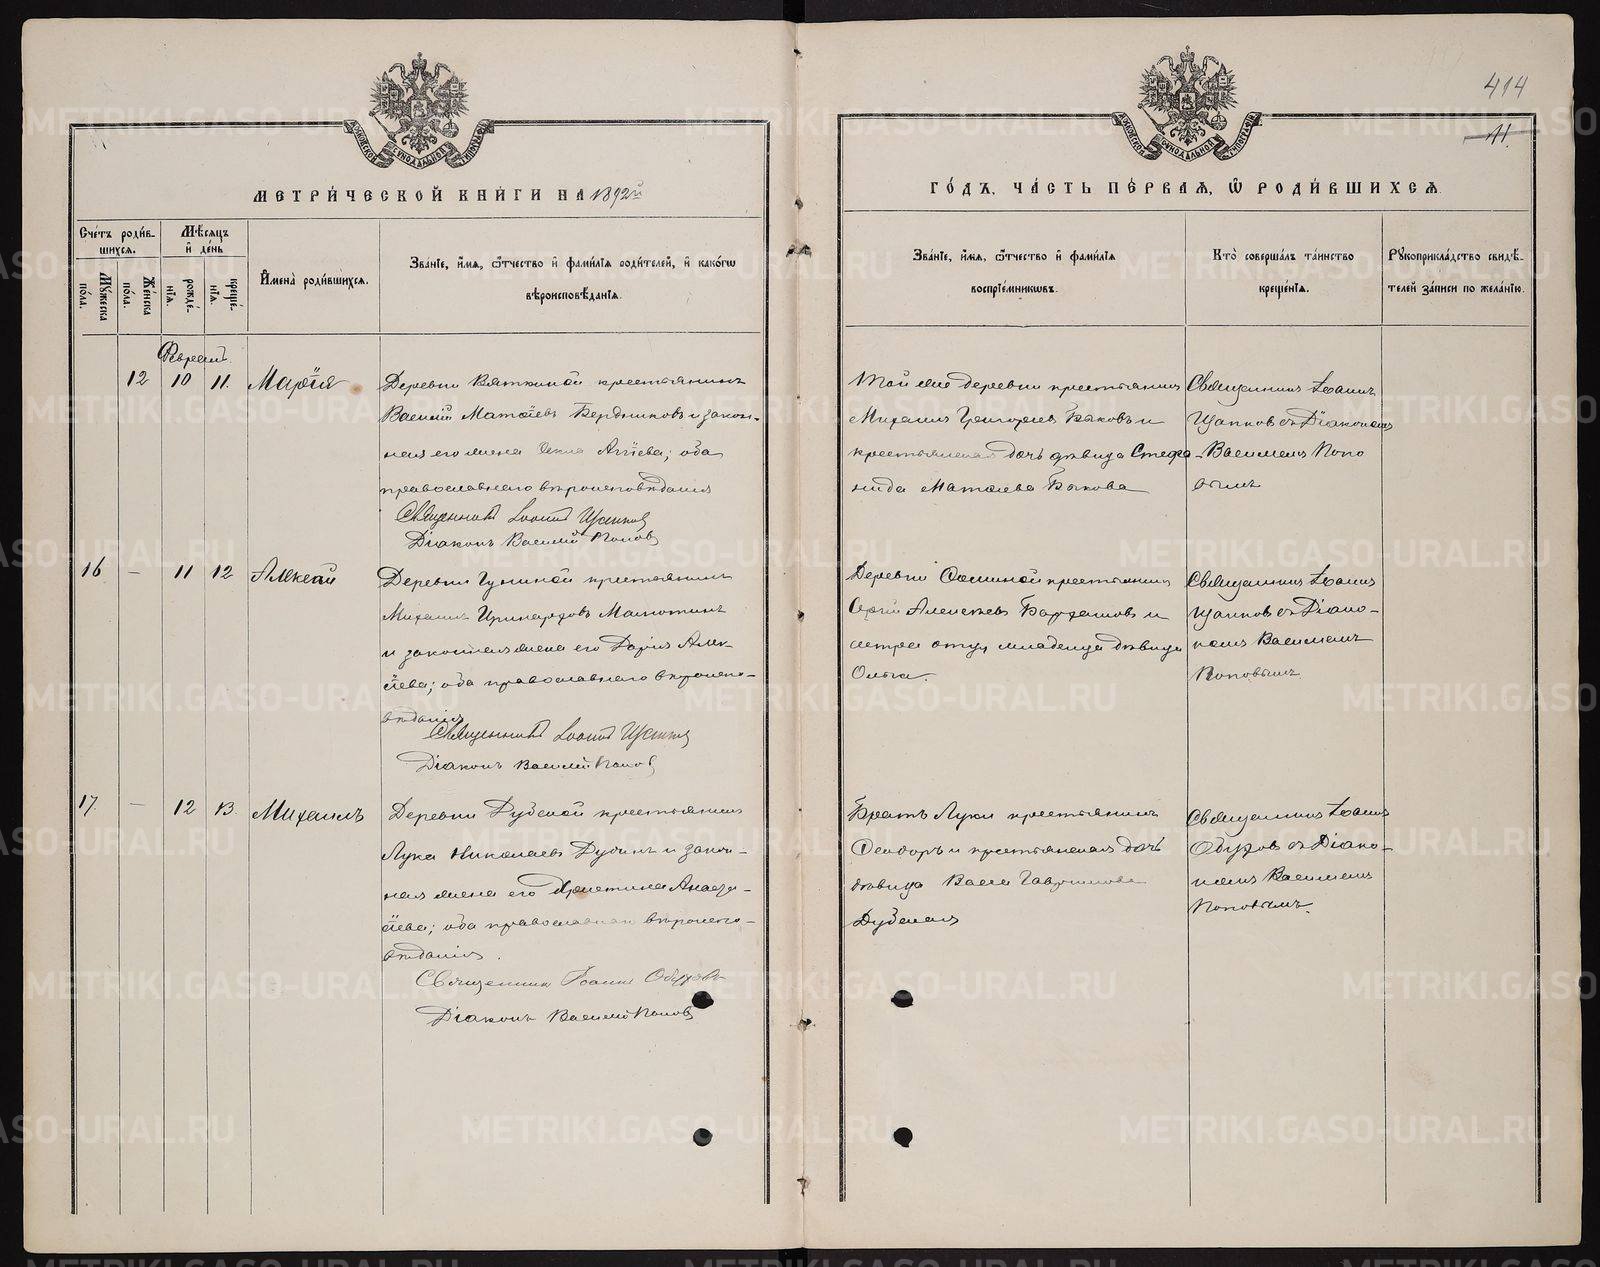 414
11.
МЕТРИ́ЧЕСКОЙ КНИ́ГИ НА 1892й
ГО́ДЪ, ЧА́СТЬ ПЕ́РВАЯ, Ѡ РОДИ́ВШИХСѦ
Сче́тъ роди́в-
шихся.
Му́жеска
по́ла.
Же́нска
по́ла.
Мѣ́сяцъ
и́ де́нь
рожде́-
нїя.
креще́-
нїя.
И҆мена̀ роди́вшихся.
Зва́нїе, и҆́мя, ѻ҆́тчество и҆ фами́лїя роди́телей, и҆ како́гѡ
вѣроисповѣ́данїя.
Зва́нїе, и҆́мя, ѻ҆́тчество и҆ фами́лїя
воспрїе́мникѡвъ.
Кто̀ соверша́лъ та́инство
креще́нїя.
Рукоприкла́дство свидѣ́-
телей за́писи по жела́нїю.
Февраль
12 10 11. Марія
Деревни Вяткиной крестьянинъ
Василій Матѳіевъ Бердниковъ и закон-
ная его жена Аггіева; оба
православнаго вѣроисповѣданія
Священникъ Іоаннъ Щапковъ
Діаконъ Василій Поповъ
Той же деревни крестьянинъ
Михаилъ Григорьевъ Быковъ и
крестьянская дочь дѣвица Стефа-
нида Матѳіева Быкова
Священникъ Іоаннъ
Щапковъ съ Діакономъ
Василіемъ Попо
вымъ
16 — 11 12 Алексій
Деревни Гуниной крестьянинъ
Михаилъ Малютинъ
и законная жена его Дарія Алек-
сіева; оба православнаго вѣроиспо-
вѣданія
Священникъ Іоаннъ Щапковъ
Діаконъ Василій Поповъ
Деревни крестьянинъ
Сергій Алексѣевъ и
сестра отца младенца дѣвица
Ольга.
Священникъ Іоаннъ
Щапковъ съ Діако-
номъ Василіемъ
Поповымъ
17. — 12 13. Михаилъ
Деревни Дубской крестьянинъ
Лука Николаевъ Дубинъ и закон-
ная жена его Христина Анаста-
сіева; оба православнаго вѣроиспо-
вѣданія.
Священникъ Іоаннъ Обуховъ
Діаконъ Василій Поповъ
Братъ Луки крестьянинъ
Ѳеодоръ и крестьянская дочь
дѣвица Васса Гаврилова
Дубская
Священникъ Іоаннъ
Обуховъ съ Діако-
номъ Василіемъ
Поповымъ.
METRIKI.GASO-URAL.RU